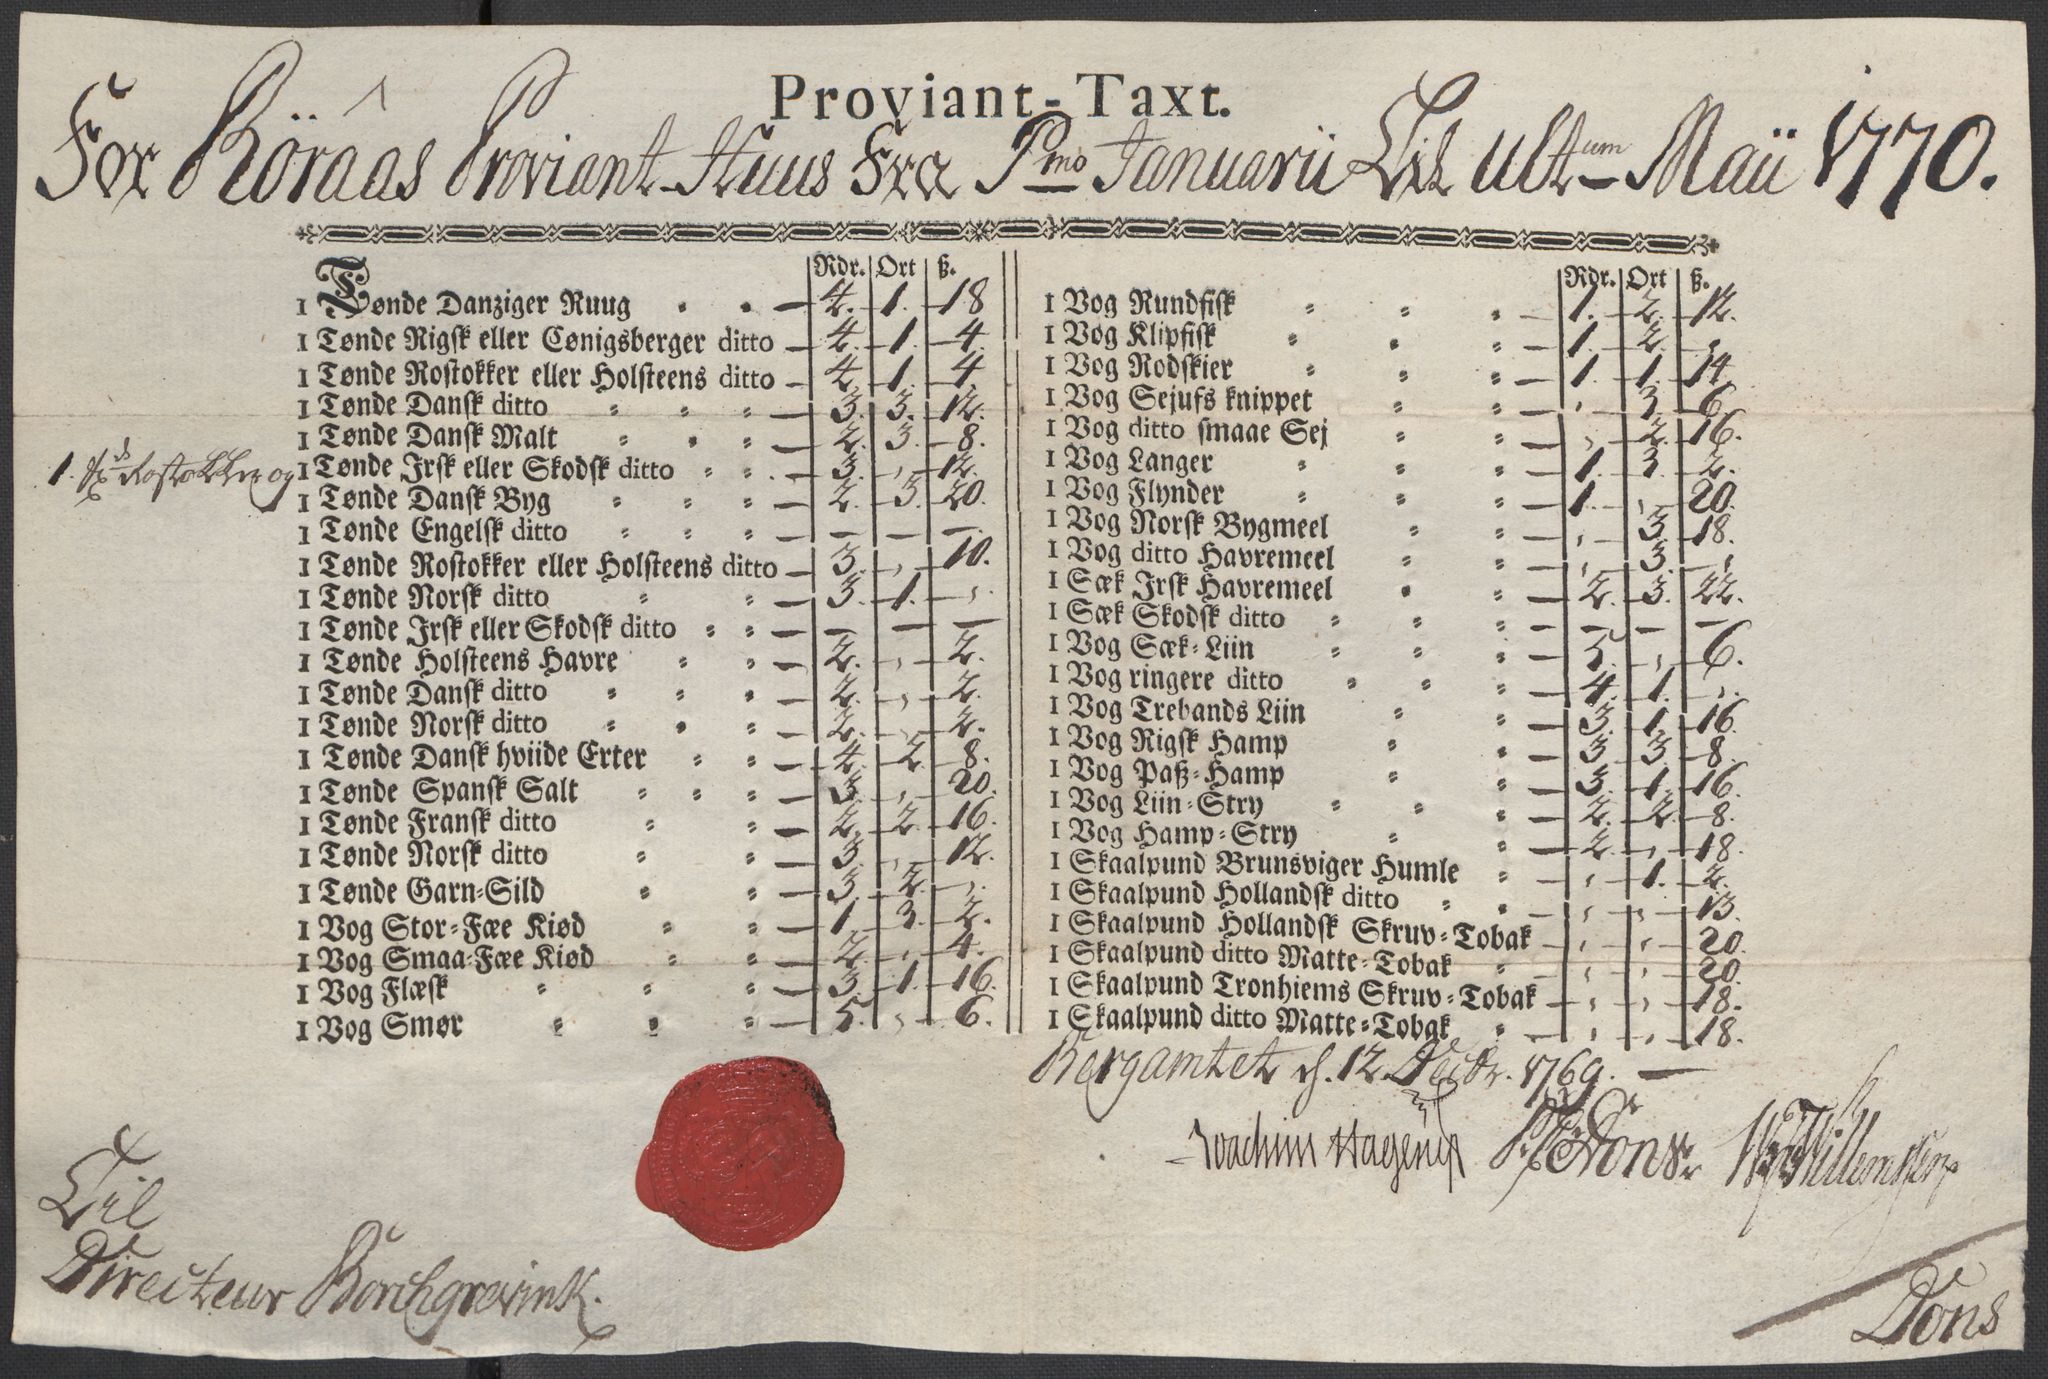 Proviant-Taxt.
For Röraas Proviant-Huus Fra Pmo Januarii Til ultum Maii 1770.
Rdr. Ort ß.
1 Tønde Danziger Ruug 4. 1. 18
1 Tønde Rigsk eller Cønigsberger ditto 4. 1. 4.
1 Tønde Rostokker eller Holsteens ditto 4. 1. 4
1 Tønde Dansk ditto 3. 3. 12.
1 Tønde Dansk Malt 2. 3. 8.
1. Rostokker og 1 Tønde Irsk eller Skodsk ditto 3. , 12.
1 Tønde Dansk Byg 2. 3. 20.
1 Tønde Engelsk ditto — — —
1 Tønde Rostokker eller Holsteens ditto 3. , 10.
1 Tønde Norsk ditto 3. 1. ,
1 Tønde Irsk eller Skodsk ditto — — —
1 Tønde Holsteens Havre 2. , 2.
1 Tønde Dansk ditto 2. , 2.
1 Tønde Norsk ditto 2. , 2.
1 Tønde Dansk hviide Erter 4. 2 8.
1 Tønde Spansk Salt 3. , 20.
1 Tønde Fransk ditto 2. 2. 16.
1 Tønde Norsk ditto 3. , 12.
1 Tønde Garn-Sild 3. 2. ,
1 Vog Stor-Fæe Kiød 1. 3. 2.
1 Vog Smaa-Fæe Kiød 2. , 4.
1 Vog Flæsk 3. 1. 16.
1 Vog Smør 5. , 6.
Rdr. Ort ß.
1 Vog Rundfisk 1. 2. 12.
1 Vog Klipfisk 1. 2. ,
1 Vog Rodskier 1. 1. 14.
1 Vog Sejufs knippet , 3. 6.
1 Vog ditto smaae Sej , 2. 16.
1 Vog Langer 1. 3. 2.
1 Vog Flynder 1. , 20.
1 Vog Norsk Bygmeel , 3. 18.
1 Vog ditto Havremeel , 3. ,
1 Sæk Irsk Havremeel 2. 3. 22.
1 Sæk Skodsk ditto — — —
1 Vog Sæk-Liin 5. , 6.
1 Vog ringere ditto 4. 1. ,
1 Vog Trebands Liin 3. 1. 16
1 Vog Rigsk Hamp 3. 3. 8.
1 Vog Paß-Hamp 3. 1. 16.
1 Vog Liin-Stry 2. 2. 8.
1 Vog Hamp-Stry 2. , 18.
1 Skaalpund Brunsviger Humle , 1. 2.
1 Skaalpund Hollandsk ditto , , 13.
1 Skaalpund Hollandsk Skruv-Tobak , , 20.
1 Skaalpund ditto Matte-Tobak , , 20.
1 Skaalpund Tronhiems Skruv-Tobak , , 18.
1 Skaalpund ditto Matte-Tobak , , 18.
Bergamtet d. 12 Decbr. 1769.
Joachim Hagerup Dons Willemsen
Til
Directeur Borchgrevink.
Dons